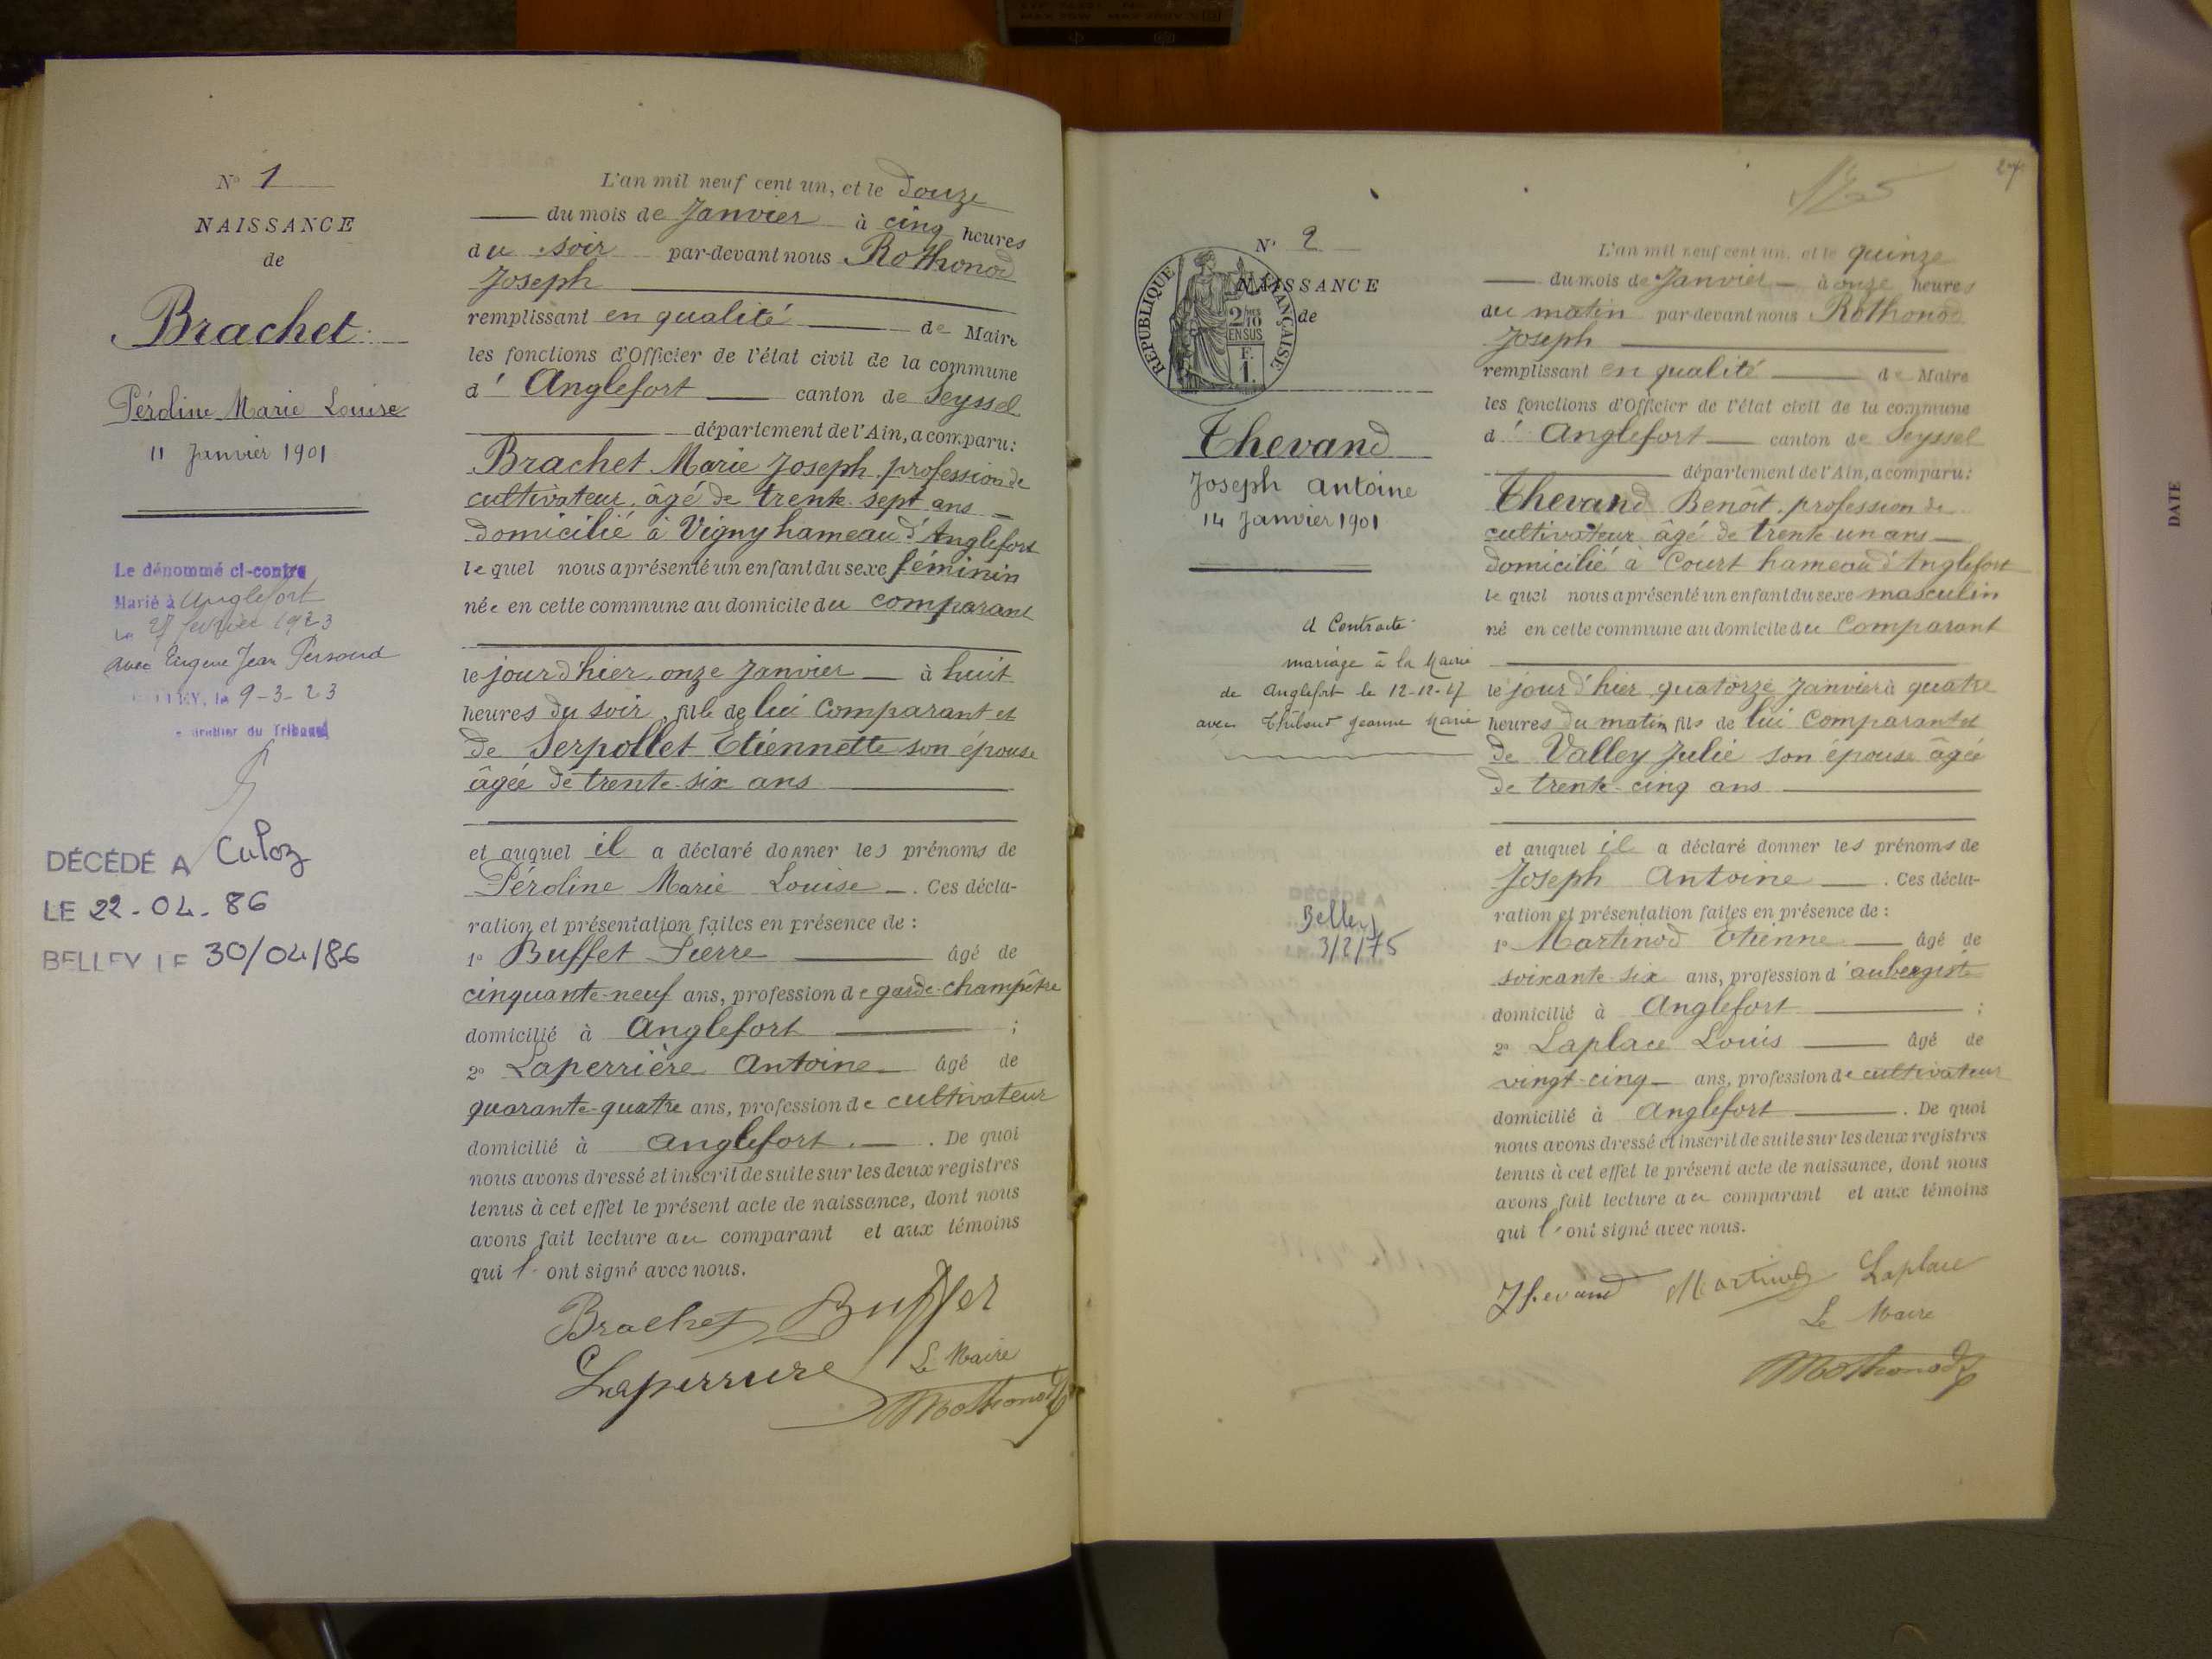 N° 1
NAISSANCE
de
Brachet
Péroline Marie Louise
11 Janvier 1901
Le dénommé ci-contre
Marié à Anglefort
Le 27 février 1923
avec Eugène Jean Persoud
BELLEY, le 9-3-23
Greffier du Tribunal
DÉCÉDÉ A Culoz
LE 22-04-86
BELLEY LE 30/04/86
L'an mil neuf cent un, et le douze
du mois de Janvier à cinq heures
du soir par-devant nous Rothonod
Joseph
remplissant en qualité de Maire
les fonctions d'Officier de l'état civil de la commune
d' Anglefort canton de Seyssel
département de l'Ain, a comparu:
Brachet Marie Joseph profession de
cultivateur, âgé de trente-sept ans
domicilié à Vigny hameau d'Anglefort
lequel nous a présenté un enfant du sexe féminin
née en cette commune au domicile du comparant
le jour d'hier onze Janvier à huit
heures du soir, fille de lui Comparant et
de Serpollet Etiennette son épouse
âgée de trente-six ans
et auquel il a déclaré donner les prénoms de
Péroline Marie Louise. Ces décla-
ration et présentation faites en présence de :
1° Buffet Pierre âgé de
cinquante-neuf ans, profession de garde-champêtre
domicilié à Anglefort ;
2° Laperrière Antoine âgé de
quarante-quatre ans, profession de cultivateur
domicilié à Anglefort. De quoi
nous avons dressé et inscrit de suite sur les deux registres
tenus à cet effet le présent acte de naissance, dont nous
avons fait lecture au comparant et aux témoins
qui l'ont signé avec nous.
Brachet Buffet
Laperrière Le Maire
Rothonod
27
N° 2
NAISSANCE
de
RÉPUBLIQUE FRANÇAISE
2/10
EN SUS
F.
1.
Thevand
Joseph Antoine
14 Janvier 1901
A Contracté
mariage à la Mairie
de Anglefort le 12-12-27
avec Thiboud Jeanne Marie
DÉCÉDÉ A
Belley
3/2/75
L'an mil neuf cent un, et le quinze
du mois de Janvier à onze heures
du matin par-devant nous Rothonod
Joseph
remplissant en qualité de Maire
les fonctions d'Officier de l'état civil de la commune
d' Anglefort canton de Seyssel
département de l'Ain, a comparu:
Thevand Benoît, profession de
cultivateur âgé de trente-un ans
domicilié à Court hameau d'Anglefort
lequel nous a présenté un enfant du sexe masculin
né en cette commune au domicile du Comparant
le jour d'hier quatorze Janvier à quatre
heures du matin, fils de lui Comparant et
de Valley Julie son épouse âgée
de trente-cinq ans
et auquel il a déclaré donner les prénoms de
Joseph Antoine. Ces décla-
ration et présentation faites en présence de :
1° Martinod Etienne âgé de
soixante-six ans, profession d'aubergiste
domicilié à Anglefort ;
2° Laplace Louis âgé de
vingt-cinq ans, profession de cultivateur
domicilié à Anglefort. De quoi
nous avons dressé et inscrit de suite sur les deux registres
tenus à cet effet le présent acte de naissance, dont nous
avons fait lecture au comparant et aux témoins
qui l'ont signé avec nous.
Thevand Martinod Laplace
Le Maire
Rothonod
DATE